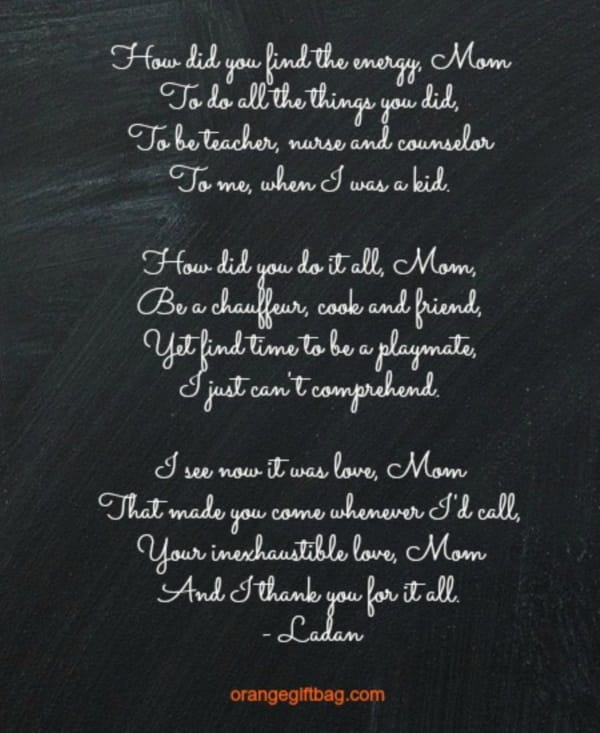 How did you find the energy, Mom
To do all the things you did,
To be teacher, nurse and counselor
To me, when I was a kid.
How did you do it all, Mom,
Be a chauffeur, cook and friend,
Yet find time to be a playmate,
I just can't comprehend.
I see now it was love, Mom
That made you come whenever I'd call,
Your inexhaustible love, Mom
And I thank you for it all.
- Ladan
orangegiftbag.com